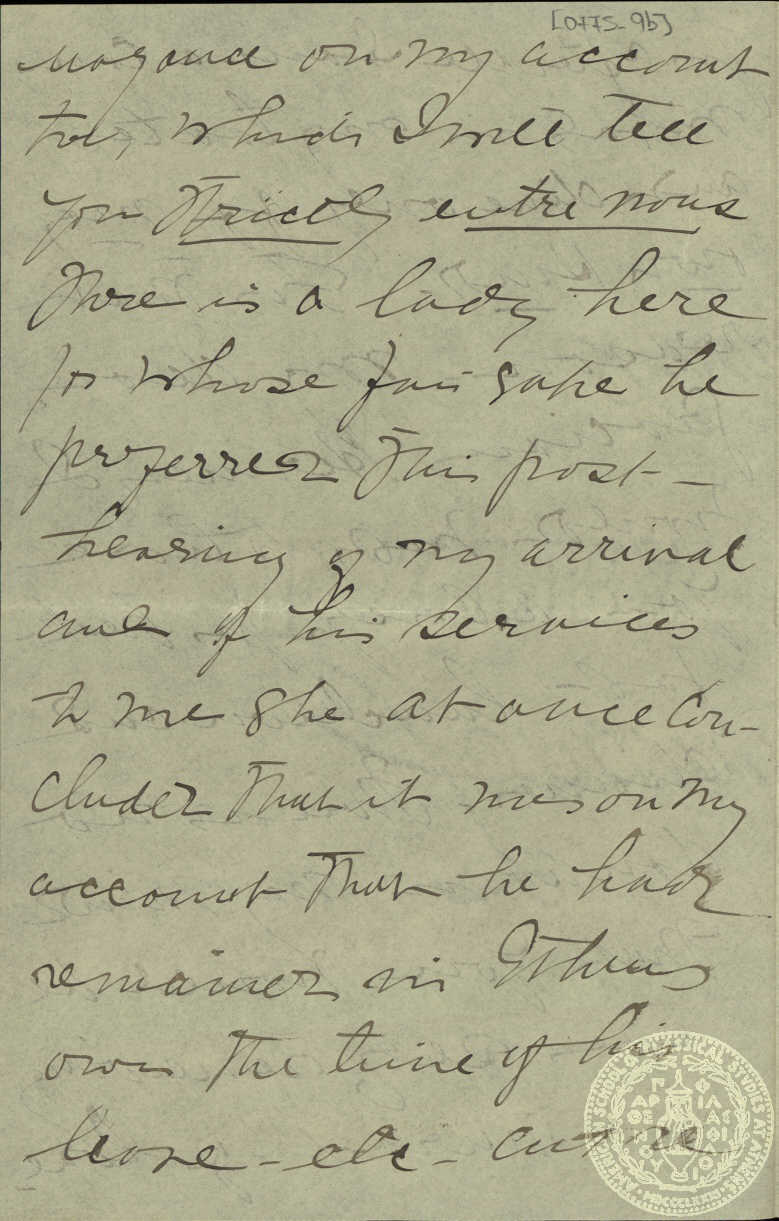 [0775-9b]
on my account
too, which I will tell
you strictly entre nous
There is a lady here
for whose fair sake he
preferred this post -
hearing of my arrival
and of his services
to me she at once con-
cluded that it was on my
account that he had
remained in Athens
over the time of his
leave - etc - cut me
AMERICAN SCHOOL OF CLASSICAL STUDIES AT ATHENS
MDCCCLXXXI